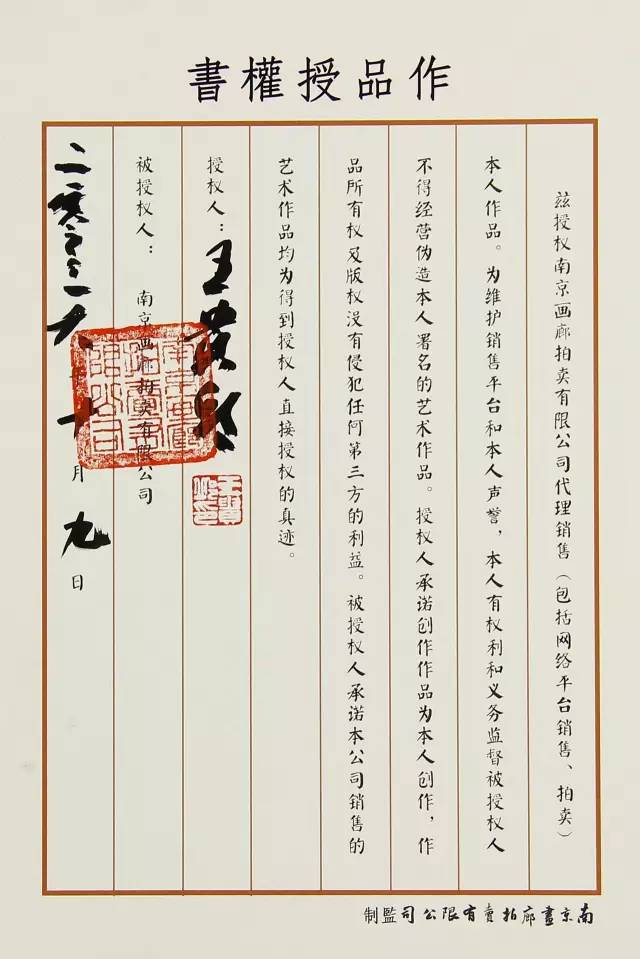 作品授權書
兹授权南京画廊拍卖有限公司代理销售（包括网络平台销售、拍卖）
本人作品。为维护销售平台和本人声誉，本人有权利和义务监督被授权人
不得经营伪造本人署名的艺术作品。授权人承诺创作作品为本人创作，作
品所有权及版权没有侵犯任何第三方的利益。被授权人承诺本公司销售的
艺术作品均为得到授权人直接授权的真迹。
授权人：王
被授权人：南京画廊拍卖有限公司
二 月九日
南京畫廊拍賣有限公司監制